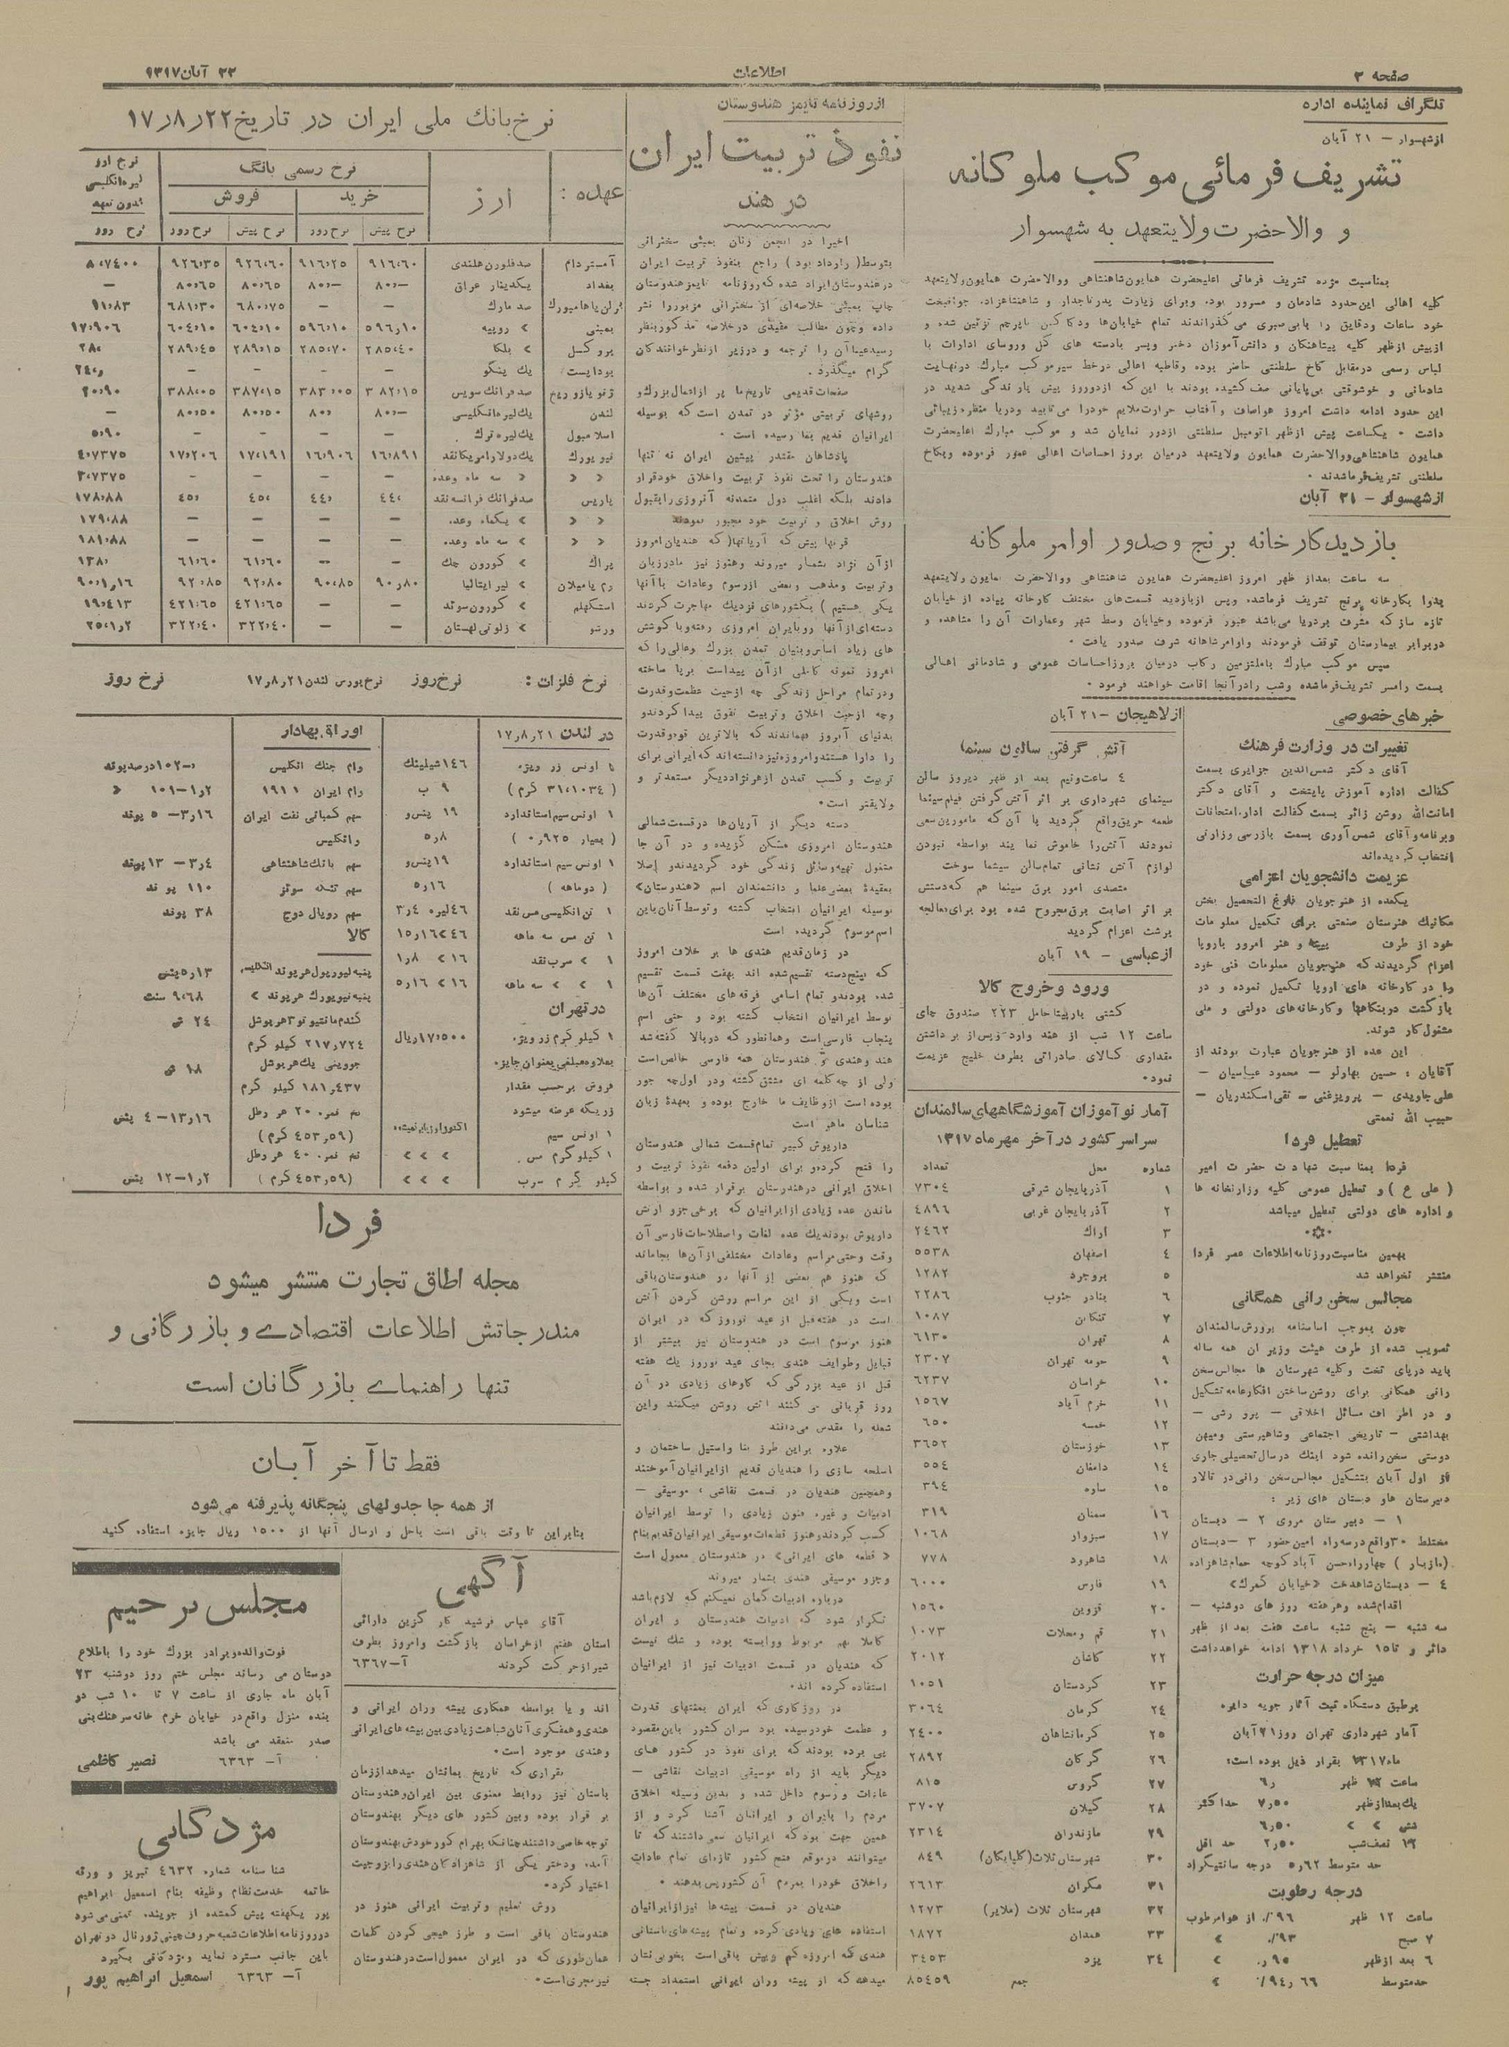 صفحه ۲
اطلاعات
۲۲ آبان ۱۳۱۷
تلگراف نماینده اداره
از شهسوار – ۲۱ آبان
تشریف فرمائی موکب ملوکانه
و والاحضرت ولایتعهد به شهسوار
بمناسبت مژده تشریف فرمائی اعلیحضرت همایون شاهنشاهی ووالاحضرت همایون ولایتعهد
کلیه اهالی این حدود شادمان و مسرور بود. وبرای زیارت پدر تاجدار و شاهنشاهزاده جوانبخت
خود ساعات ودقایق را با بی صبری می گذراندند تمام خیابان‌ها ودکاکین باپرچم تزئین شده و
ازپیش ازظهر کلیه پیشاهنگان و دانش‌آموزان دختر وپسر بادسته های گل وروسای ادارات با
لباس رسمی درمقابل کاخ سلطنتی حاضر بوده وقاطبه اهالی درخط سیر موکب مبارك درنهایت
شادمانی و خوشوقتی بی‌پایانی صف کشیده بودند با این که ازدوروز پیش بارندگی شدید در
این حدود ادامه داشت امروز هواصاف وآفتاب حرارت ملایم خودرا می‌تابید ودریا منظره زیبائی
داشت • یکساعت پیش ازظهر اتومبیل سلطنتی ازدور نمایان شد و موکب مبارك اعلیحضرت
همایون شاهنشاهی ووالاحضرت همایون ولایتعهد درمیان بروز احساسات اهالی عبور فرموده وبکاخ
سلطنتی تشریف‌فرماشدند •
از شهسوار – ۲۱ آبان
بازدید کارخانه برنج وصدور اوامر ملوکانه
سه ساعت بعداز ظهر امروز اعلیحضرت همایون شاهنشاهی ووالاحضرت همایون ولایتعهد
بدوا بکارخانه برنج تشریف فرماشده وپس ازبازدید قسمت‌های مختلف کارخانه پیاده از خیابان
تازه ساز که مشرف بردریا می‌باشد عبور فرموده وخیابان وسط شهر وعمارات آن را مشاهده و
دربرابر بیمارستان توقف فرمودند واوامر شاهانه شرف صدور یافت •
سپس موکب مبارك باملتزمین رکاب درمیان بروزاحساسات عمومی و شادمانی اهالی
بسمت رامسر تشریف‌فرماشده وشب رادرآنجا اقامت خواهند فرمود •
خبرهای خصوصی
تغییرات در وزارت فرهنك
آقای دکتر شمس‌الدین جزایری بسمت
کفالت اداره آموزش پایتخت و آقای دکتر
امانت‌الله روشن زائر بسمت کفالت اداره امتحانات
وبرنامه وآقای شمس‌آوری بسمت بازرسی وزارتی
انتخاب گردیده‌اند
عزیمت دانشجویان اعزامی
یکعده از هنرجویان فارغ التحصیل بخش
مکانیك هنرستان صنعتی برای تکمیل معلومات
خود از طرف پیشه و هنر امروز باروپا
اعزام گردیدند که هنرجویان معلومات فنی خود
را در کارخانه های اروپا تکمیل نموده و در
بازگشت دربنگاهها وکارخانه‌های دولتی و ملی
مشغول کار شوند.
این عده از هنرجویان عبارت بودند از
آقایان : حسین بهارلو – محمود عباسیان –
علی جاویدی – پرویزغنی – تقی اسکندریان –
حبیب الله نعمتی
تعطیل فردا
فردا بمناسبت شهادت حضرت امیر
( علی ع ) و تعطیل عمومی کلیه وزارتخانه ها
و اداره های دولتی تعطیل میباشد
بهمین مناسبت روزنامه اطلاعات عصر فردا
منتشر نخواهد شد
مجالس سخن رانی همگانی
چون بموجب اساسنامه پرورش سالمندان
تصویب شده از طرف هیئت وزیران همه ساله
باید درپای تخت وکلیه شهرستان ها مجالس سخن
رانی همگانی برای روشن ساختن افکار عامه تشکیل
و در اطراف مسائل اخلاقی – پرورشی –
بهداشتی – تاریخی اجتماعی وشاهپرستی ومیهن
دوستی سخن‌رانده شود اینك درسال تحصیلی جاری
از اول آبان بتشکیل مجالس سخن رانی در تالار
دبیرستان هاو دبستان های زیر :
۱ – دبیرستان مروی ۲ – دبستان
مختلط ۳۰ واقع درسه‌راه امین حضور ۳ – دبستان
(مازیار ) چهارراه حسن آباد کوچه حمام شاهزاده
۴ – دبستان شاهدخت «خیابان گمرك»
اقدام‌شده وهرهفته روز های دوشنبه –
سه شنبه – پنج شنبه ساعت هفت بعد از ظهر
دائر و تا۱۵ خرداد ۱۳۱۸ ادامه خواهدداشت
میزان درجه حرارت
برطبق دستگاه ثبت آثار جویه دایره
آمار شهرداری تهران روز ۲۱ آبان
ماه ۱۳۱۷ بقرار ذیل بوده است:
ساعت ۱۲ ظهر ۶٫
یك بعدازظهر ۷٫۵۰ حداکثر
شش » » ۶٫۵۰
۱۲ نصف‌شب ۲٫۵۰ حد اقل
حد متوسط ۵٫۶۲ درجه سانتیگراد
درجه رطوبت
ساعت ۱۲ ظهر ۹۶٪ از هوامرطوب
۷ صبح ۹۳٪ »
۶ بعد ازظهر ۹۵٪ »
حدمتوسط ۹۴٫۶۶٪ »
از لاهیجان – ۲۱ آبان
آتش گرفتن سالون سینما
۴ ساعت‌ونیم بعد از ظهر دیروز سالن
سینمای شهرداری بر اثر آتش گرفتن فیلم سینما
طعمه حریق واقع گردید با آن که مامورین سعی
نمودند آتش‌را خاموش نمایند بواسطه نبودن
لوازم آتش نشانی تمام سالن سینما سوخت
متصدی امور برق سینما هم که دستش
بر اثر اصابت برق مجروح شده بود برای معالجه
برشت اعزام گردید
از عباسی – ۱۹ آبان
ورود وخروج کالا
کشتی بارپیتا حامل ۲۲۳ صندوق چای
ساعت ۱۲ شب از هند وارد و پس از بر داشتن
مقداری کالای صادراتی بطرف خلیج عزیمت
نمود•
آمار نو آموزان آموزشگاههای سالمندان
سراسر کشور در آخر مهرماه ۱۳۱۷
شماره محل تعداد
۱ آذربایجان شرقی ۷۳۰۴
۲ آذربایجان غربی ۴۸۹۶
۳ اراك ۲۴۶۲
۴ اصفهان ۵۵۳۸
۵ بروجرد ۱۲۸۲
۶ بنادر جنوب ۲۲۸۶
۷ تنکابن ۱۰۸۷
۸ تهران ۶۱۳۰
۹ حومه تهران ۲۳۰۷
۱۰ خراسان ۶۲۳۷
۱۱ خرم آباد ۱۵۶۷
۱۲ خمسه ۶۵۰
۱۳ خوزستان ۳۶۵۲
۱۴ دامغان ۵۵۴
۱۵ ساوه ۳۹۴
۱۶ سمنان ۳۱۹
۱۷ سبزوار ۱۰۶۸
۱۸ شاهرود ۷۷۸
۱۹ فارس ۶۰۰۰
۲۰ قزوین ۱۵۶۰
۲۱ قم ومحلات ۱۰۷۳
۲۲ کاشان ۲۰۱۲
۲۳ کردستان ۱۰۵۱
۲۴ کرمان ۳۰۶۴
۲۵ کرمانشاهان ۲۴۰۰
۲۶ گرگان ۲۸۹۲
۲۷ گروس ۸۱۵
۲۸ گیلان ۳۷۰۷
۲۹ مازندران ۲۳۱۴
۳۰ شهرستان ثلاث (گلپایگان) ۸۴۹
۳۱ مکران ۲۶۱۳
۳۲ شهرستان ثلاث (ملایر) ۱۲۷۳
۳۳ همدان ۱۸۷۲
۳۴ یزد ۳۴۵۳
جمع ۸۵۴۵۹
از روزنامه تایمز هندوستان
نفوذ تربیت ایران
در هند
اخیرا در انجمن زنان بمبئی سخنرانی
بتوسط ( راودادبود ) راجع بنفوذ تربیت ایران
درهندوستان ایراد شده که روزنامه تایمز هندوستان
چاپ بمبئی خلاصه‌ای از سخنرانی مزبوررا نشر
داده وچون مطالب مفیدی درخلاصه مذکور بنظر
رسید عینا آن را ترجمه و درزیر ازنظرخوانندگان
گرام میگذرد.
صفحات قدیمی تاریخ ما پر ازاعمال بزرك و
روشهای تربیتی مؤثر در تمدن است که بوسیله
ایرانیان قدیم بما رسیده است •
پادشاهان مقتدر پیشین ایران نه تنها
هندوستان را تحت نفوذ تربیت واخلاق خودقرار
دادند بلکه اغلب دول متمدنه آنروزی رابقبول
روش اخلاق و تربیت خود مجبور نمودند
قرنها پیش که آریانها( که هندیان امروز
ازآن نژاد بشمار میروند وهنوز نیز مادرزبان
وتربیت ومذهب وبعضی ازرسوم وعادات باآنها
یکی هستیم ) بکشورهای نزدیك مهاجرت کردند
دسته‌ای ازآنها روبایران امروزی رفته وباکوشش
های زیاد اساس وبنیان تمدن بزرك وعالی‌را که
امروز نمونه کاملی ازآن پیداست برپا ساخته
ودرتمام مراحل زندگی چه ازحیث عظمت وقدرت
وچه ازحیث اخلاق وتربیت تفوق پیداکردندو
بدنیای آنروز فهماندند که بالاترین قوه‌وقدرت
را دارا هستندوامروزه نیز دانسته‌اند که ایرانی برای
تربیت و کسب تمدن ازهرنژاددیگر مستعدتر و
ولایقتر است•
دسته دیگر از آریان‌ها درقسمت شمالی
هندوستان امروزی مسکن گزیده و در آن جا
مشغول تهیه وسائل زندگی خود گردیدندو اصلا
بعقیده بعضی علما و دانشمندان اسم «هندوستان»
بوسیله ایرانیان انتخاب گشته وتوسط آنان باین
اسم موسوم گردیده است
در زمان قدیم هندی ها بر خلاف امروز
که پنج دسته تقسیم شده اند بهفت قسمت تقسیم
شده بودندو تمام اسامی فرقه‌های مختلف آن‌ها
توسط ایرانیان انتخاب گشته بود و حتی اسم
پنجاب فارسی است وهمانطور که دربالا گفته‌شد
هند وهندی و هندوستان همه فارسی خالص است
ولی از چه کلمه ای مشتق گشته ودر اول چه جور
بوده است ازوظایف ما خارج بوده و بعهدهٔ زبان
شناسان ماهر است
داریوش کبیر تمام قسمت شمالی هندوستان
را فتح کرده‌و برای اولین دفعه نفوذ تربیت و
اخلاق ایرانی درهندوستان برقرار شده و بواسطه
ماندن عده زیادی ازایرانیان که برخی جزو ارتش
داریوش بودندیك عده لغات واصطلاحات فارسی آن
وقت وحتی مراسم وعادات مختلفی ازآن‌ها بجاماند
که هنوز هم بعضی از آنها در هندوستان باقی
است ویکی از این مراسم روشن کردن آتش
است در هفته قبل از عید نوروز که در ایران
هنوز مرسوم است در هندوستان نیز بیشتر از
قبایل وطوایف هندی بجای عید نوروز یك هفته
قبل از عید بزرگی که گاوهای زیادی در آن
روز قربانی می کنند آتش روشن میکنند واین
شعله را مقدس می‌دانند
علاوه براین طرز بنا واستیل ساختمان و
اسلحه سازی را هندیان قدیم ازایرانیان آموختند
وهمچنین هندیان در قسمت نقاشی ، موسیقی –
ادبیات و غیره فنون زیادی را توسط ایرانیان
کسب کردندوهنوز قطعات موسیقی ایرانیان قدیم بنام
« قطعه های ایرانی» در هندوستان معمول است
وجزو موسیقی هندی بشمار میروند
درباره ادبیات گمان نمیکنم که لازم باشد
تکرار شود که ادبیات هندوستان و ایران
کاملا بهم مربوط ووابسته بوده و شك نیست
که هندیان در قسمت ادبیات نیز از ایرانیان
استفاده کرده اند•
در روزگاری که ایران بمنتهای قدرت
و عظمت خودرسیده بود سران کشور باین مقصود
پی برده بودند که برای نفوذ در کشور های
دیگر باید از راه موسیقی ادبیات نقاشی –
عادات و رسوم داخل شده و بدین وسیله اخلاق
مردم را بایران و ایرانیان آشنا کرد و از
همین جهت بودکه ایرانیان سعی داشتند که تا
میتوانند درموقع فتح کشور تازه‌ای تمام عادات
واخلاق خودرا بمردم آن کشوربس بدهند •
هندیان در قسمت پیشه‌ها نیزازایرانیان
استفاده های زیادی کرده و تمام پیشه های باستانی
هندی که امروزه کم وبیش باقی است بخوبی نشان
میدهد که از پیشه وران ایرانی استمداد جسته
اند و یا بواسطه همکاری پیشه وران ایرانی و
هندی وهمفکری آنان شباهت زیادی بین پیشه‌های ایرانی
وهندی موجود است•
بقراری که تاریخ بمانشان میدهد اززمان
باستان نیز روابط معنوی بین ایران‌وهندوستان
بر قرار بوده وبین کشور های دیگر بهندوستان
توجه خاصی داشتند چنانکه بهرام گورخودش بهندوستان
آمده ودختر یکی از شاهزادگان هندی رابزوجیت
اختیار کرد•
روش تعلیم وتربیت ایرانی هنوز در
هندوستان باقی است و طرز هیجی کردن کلمات
همان‌طوری که در ایران معمول‌است درهندوستان
نیز مجری‌است•
نرخ بانك ملی ایران در تاریخ ۲۲ر۸ر۱۷
عهده : ارز نرخ رسمی بانگ نرخ ارز لیره انگلیسی بدون تعهد
خرید فروش
نرخ پیش نرخ روز نرخ پیش نرخ روز نرخ روز
آمستردام صدفلورن هلندی ۹۱۶٫۶۰ ۹۱۶٫۲۵ ۹۲۶٫۶۰ ۹۲۶٫۳۵ ۸٫۷۴۰۰
بغداد یکدینار عراق ۸۰٫– ۸۰٫– ۸۰٫۶۵ ۸۰٫۶۵ –
برلن یاهامبورك صد مارك – – ۶۸۰٫۷۵ ۶۸۱٫۳۰ ۱۱٫۸۳
بمبئی » روپیه ۵۹۶٫۱۰ ۵۹۶٫۱۰ ۶۰۴٫۱۰ ۶۰۴٫۱۰ ۱۷٫۹۰۶
بروکسل » بلگا ۲۸۵٫۴۰ ۲۸۵٫۷۰ ۲۸۹٫۱۵ ۲۸۹٫۴۵ ۲۸٫
بوداپست یك پنگو – – – – ۲۴٫
ژنو یازوریخ صدفرانك سویس ۳۸۲٫۱۵ ۳۸۳٫۰۵ ۳۸۷٫۱۵ ۳۸۸٫۰۵ ۲۰٫۹۰
لندن یك لیره انگلیسی ۸۰٫– ۸۰٫ ۸۰٫۵۰ ۸۰٫۵۰ –
اسلامبول یك لیره ترك – – – – ۵٫۹۰
نیویورك یك دولار امریکا نقد ۱۶٫۸۹۱ ۱۶٫۹۰۶ ۱۷٫۱۹۱ ۱۷٫۲۰۶ ۴٫۷۳۷۵
» » » سه ماه وعده – – – – ۴٫۷۳۷۵
پاریس صدفرانك فرانسه نقد ۴۴٫ ۴۴٫ ۴۵٫ ۴۵٫ ۱۷۸٫۸۸
» » » یکماه وعده – – – – ۱۷۹٫۸۸
» » » سه ماه وعده – – – – ۱۸۱٫۸۸
پراك » کورون چك – – ۶۱٫۶۰ ۶۱٫۶۰ ۱۳۸٫
رم یا میلان » لیر ایتالیا ۹۰٫۸۰ ۹۰٫۸۵ ۹۲٫۸۰ ۹۲٫۸۵ ۹۰٫۱٫۱۶
استکهلم » کورون سوئد – – ۴۲۱٫۶۵ ۴۲۱٫۶۵ ۱۹٫۴۱۳
ورشو » زلوتی لهستان – – ۳۲۲٫۴۰ ۳۲۲٫۴۰ ۲۵٫۱٫۲
نرخ فلزات : نرخ روز نرخ بورس لندن ۲۱ر۸ر۱۷ نرخ روز
در لندن ۲۱ر۸ر۱۷
۱ اونس زر ویژه ۱۴۶ شیلینك
( ۳۱٫۱۰۳۴ گرم ) ۹ پ
۱ اونس سیم استاندارد ۱۹ پنس و
( بعیار ۰٫۹۲۵ ) ۵٫۸
۱ اونس سیم استاندارد ۱۹ پنس و
( دوماهه ) ۵٫۱۶
۱ تن انگلیسی مس نقد ۴۶ لیره ۳٫۴
۱ تن مس سه ماهه ۴۶ » ۱۵٫۱۶
۱ » سرب نقد ۱۶ » ۱٫۸
۱ » » سه ماهه ۱۶ » ۵٫۱۶
در تهران
۱ کیلو گرم زر ویژه ۱۷٫۵۰۰ ریال
بعلاوه مبلغی بعنوان جایزه
فروش برحسب مقدار
زریکه عرضه میشود
۱ اونس سیم
۱ کیلو گرم مس » » »
کیلو گرم سرب » » »
اوراق بهادار
وام جنك انگلیس ۱۰۲– در صدپوند
وام ایران ۱۹۱۱ ۱۰۱–۱٫۲ »
سهم کمپانی نفت ایران ۵–۳٫۱۶ پوند
وانگلیس
سهم بانك شاهنشاهی ۱۳–۳٫۴ پوند
سهم تنگه سوئز ۱۱۰ پوند
سهم رویال دوچ ۳۸ پوند
کالا
پنبه لیورپول هر پوند انگلیس ۵٫۱۳ پنس
پنبه نیویورك هرپوند » ۹٫۶۸ سنت
گندم مانتیوتو ۳ هربوشل ۲۴ ش
۲۱۷٫۷۲۴ کیلو گرم
جووینی یك هربوشل ۱۸ ش
۱۸۱٫۴۳۷ کیلو گرم
نخ نمره ۲۰ هر رطل ۴–۱۳٫۱۶ پنس
(۴۵۳٫۵۹ گرم )
نخ نمره ۴۰ هر رطل
(۴۵۳٫۵۹ گرم ) ۱۲–۱٫۲ پنس
فردا
مجله اطاق تجارت منتشر میشود
مندرجاتش اطلاعات اقتصادی و بازرگانی و
تنها راهنمای بازرگانان است
فقط تا آخر آبان
از همه جا جدولهای پنجگانه پذیرفته می‌شود
بنابراین تا وقت باقی است باحل و ارسال آنها از ۱۵۰۰ ریال جایزه استفاده کنید
آگهی
آقای عباس فرشید کارگزین دارائی
استان هفتم ازخراسان بازگشت وامروز بطرف
شیراز حرکت کردند آ–۶۳۶۷
مجلس ترحیم
فوت‌والده‌وبرادر بزرك خود را باطلاع
دوستان می رساند مجلس ختم روز دوشنبه ۲۳
آبان ماه جاری از ساعت ۷ تا ۱۰ شب در
بنده منزل واقع در خیابان خرم خانه سرهنك‌بنی
صدر منعقد می باشد
آ– ۶۳۶۳ نصیر کاظمی
مژدگانی
شناسنامه شماره ۴۶۳۲ تبریز و ورقه
خاتمه خدمت‌نظام وظیفه بنام اسمعیل ابراهیم
پور یکهفته پیش گمشده از جوینده تمنی می‌شود
درروزنامه اطلاعات شعبه حروف‌چینی ژورنال دو تهران
باین جانب مسترد نماید ومژدگانی بگیرد
آ– ۶۳۶۳ اسمعیل ابراهیم پور